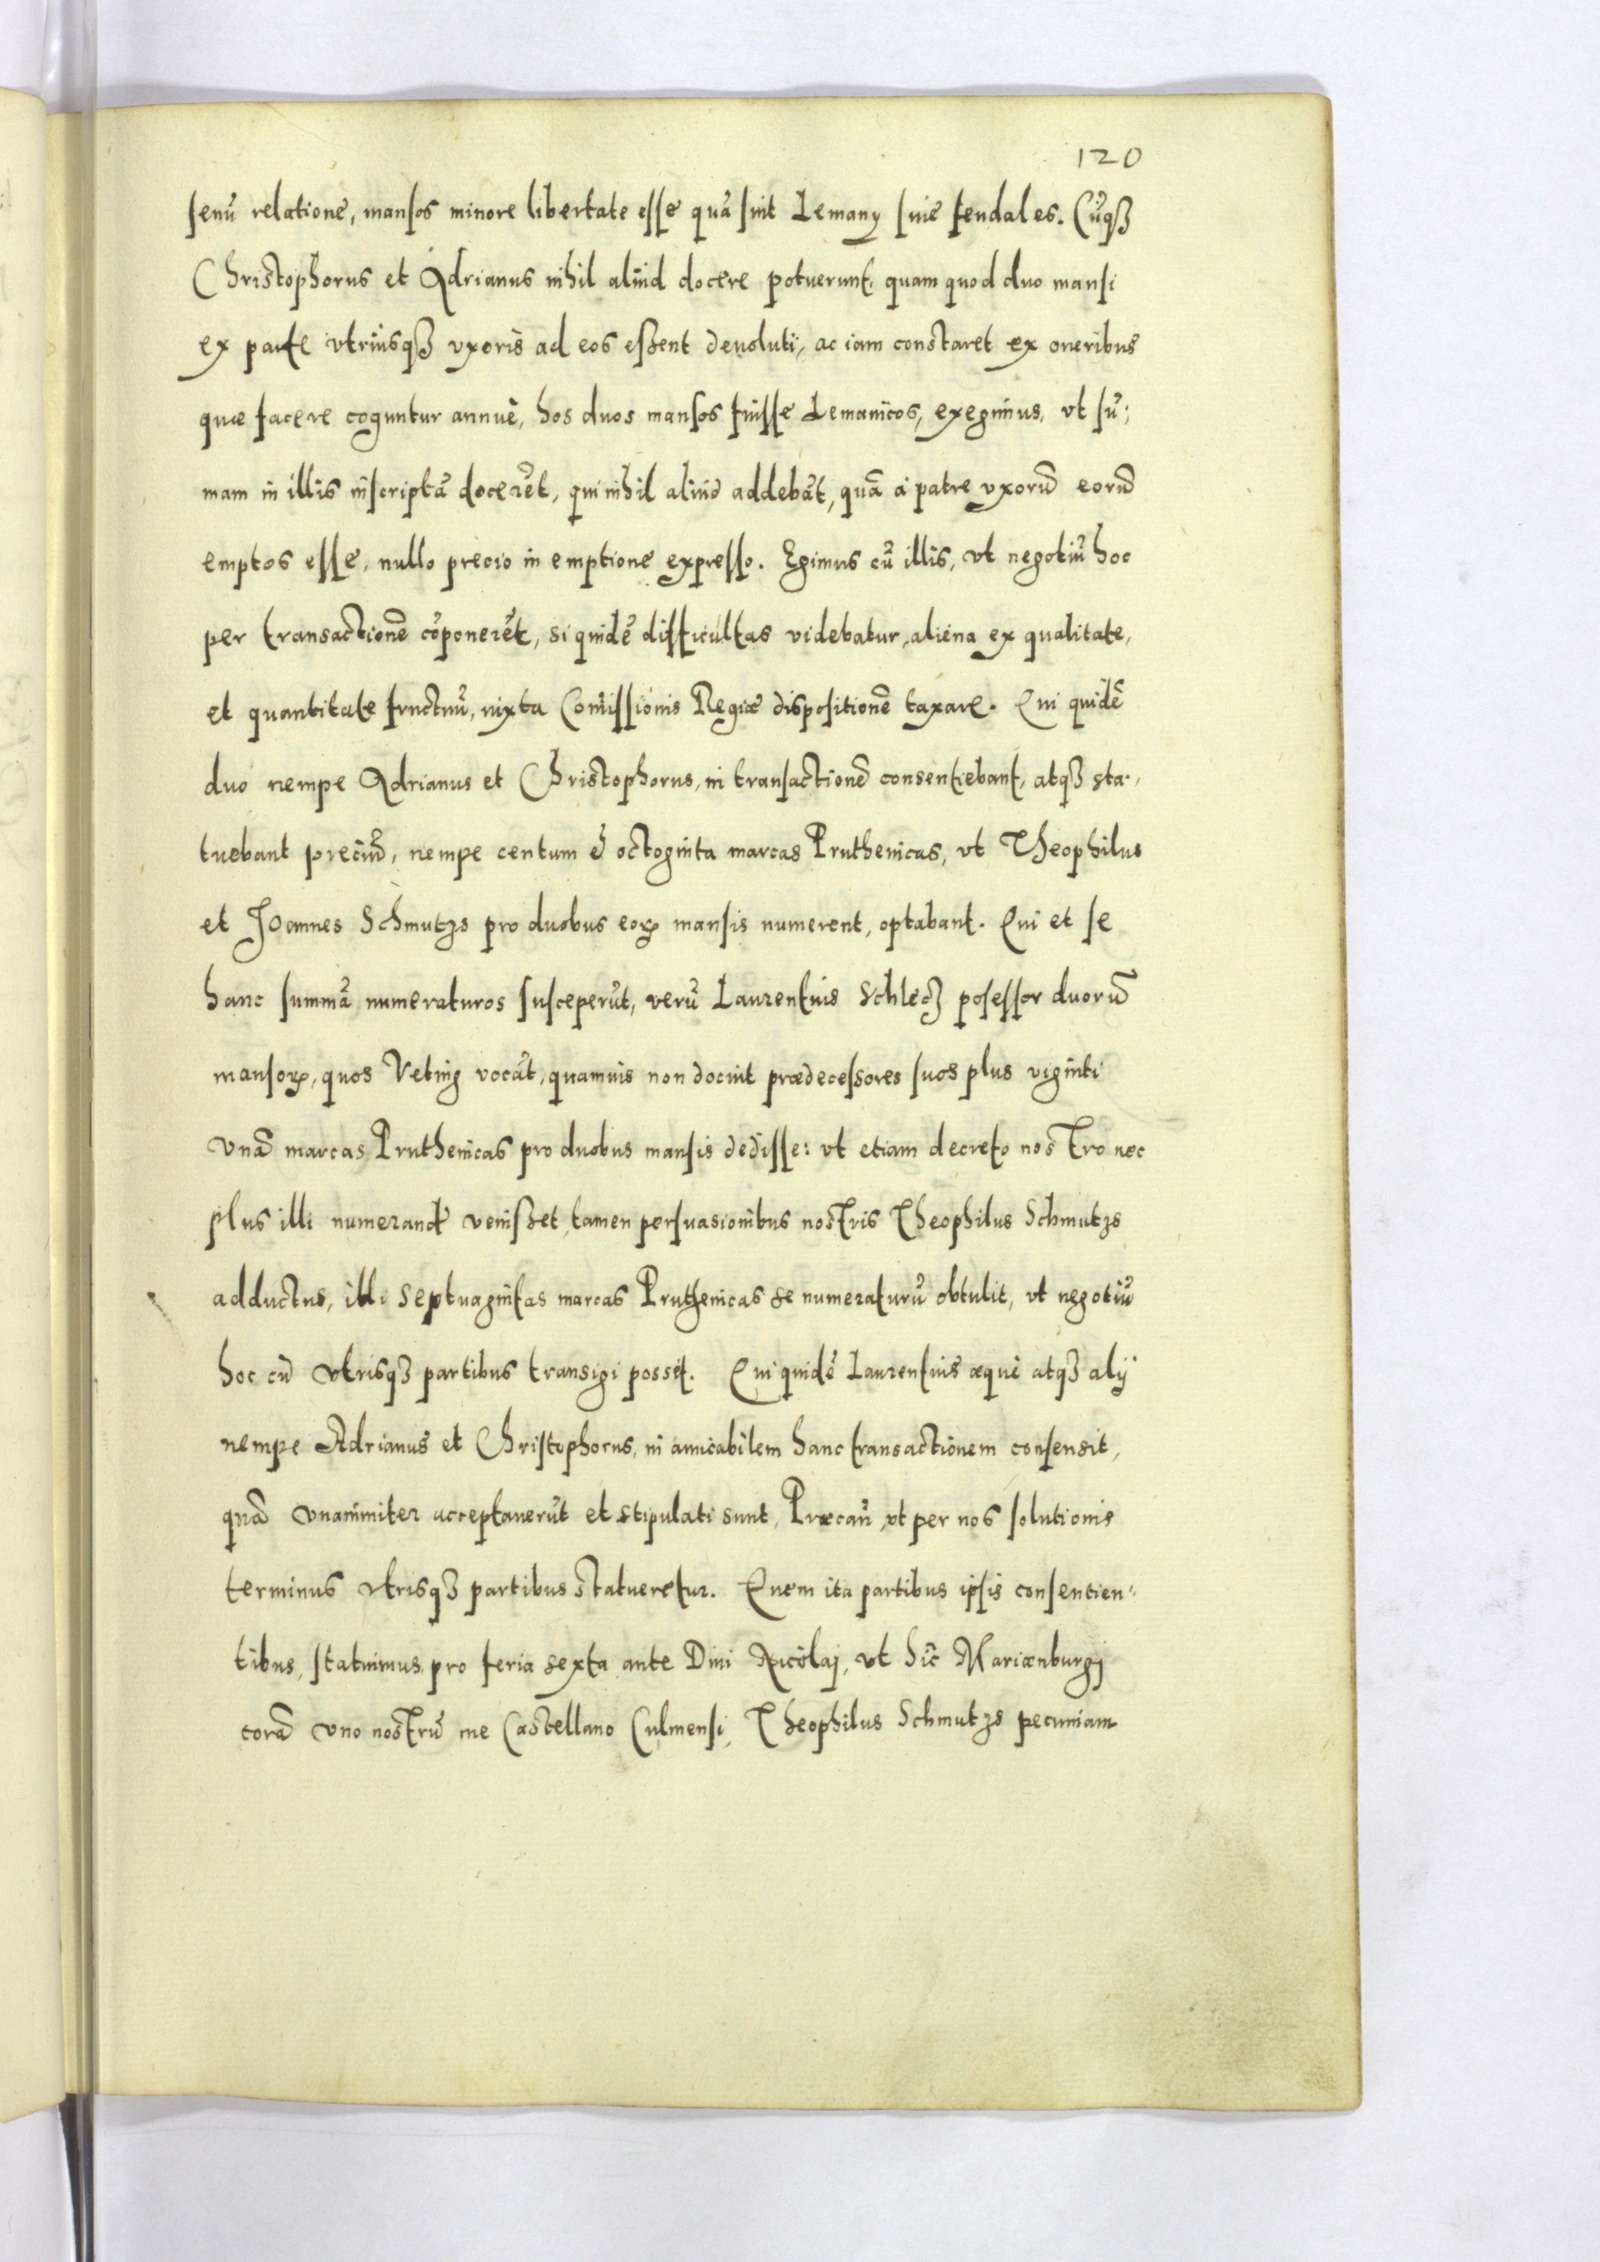 120
senū relatione, mansos minore libertate esse quā sint Lemany siue feudales. Cūqꝫ
Christophorus et Adrianus nihil aliud docere potuerunt, quam quod duo mansi
ex parte vtriusqꝫ vxoris ad eos essent deuoluti, ac iam constaret ex oneribus
quæ facere coguntur annuè, hos duos mansos fuisse Lemanicos, exegimus, vt sū;
mam in illis inscriptā docerēt, qui nihil aliud addebāt, quā à patre vxorū eorū
emptos esse, nullo precio in emptione expresso. Egimus cū illis, vt negotiū hoc
per transactionē cōponerēt, si quidē difficultas videbatur, aliena ex qualitate,
et quantitate fructuū, iuxta Comissionis Regiæ dispositionē taxare. Qui quidē
duo nempe Adrianus et Christophorus, in transactionē consentiebant, atqꝫ sta-
tuebant preciū, nempe centum & octoginta marcas Pruthenicas, vt Theophilus
et Joannes Schmutzs pro duobus eoꝝ mansis numerent, optabant. Qui et se
hanc summā numeraturos susceperūt, verū Laurentius Schlecz posessor duorū
mansoꝝ, quos Veting vocāt, quamuis non docuit prædecessores suos plus viginti
vnā marcas Pruthenicas pro duobus mansis dedisse: vt etiam decreto nostro nec
plus illi numerand venisset, tamen persuasionibus nostris Theophilus Schmutzs
adductus, illi septuagintas marcas Pruthenicas se numeraturū obtulit, vt negotiū
hoc cū vtrisqꝫ partibus transigi posset. Qui quidē Laurentius æquè atqꝫ alij
nempe Adrianus et Christophorus, in amicabilem hanc transactionem consensit,
quā vnanimiter acceptauerūt et stipulati sunt, Præcaū, vt per nos solutionis
terminus vtrisqꝫ partibus statueretur. Quem ita partibus ipsis consentien-
tibus, statuimus, pro feria sexta ante Diui Nicolaj, vt hic Mariænburgj
corā vno nostrū me Castellano Culmensi, Theophilus Schmutzs pecuniam